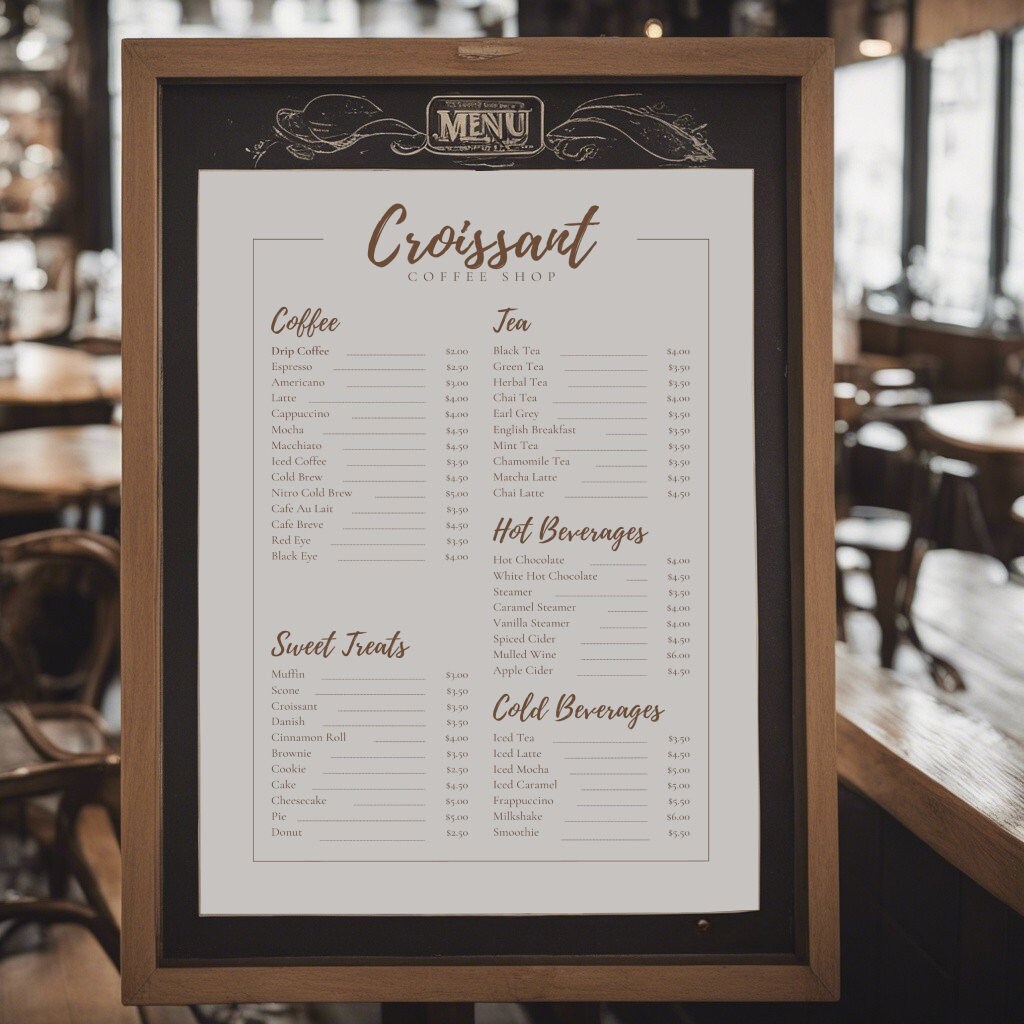 MENU
Croissant
COFFEE SHOP
Coffee
Drip Coffee $2.00
Espresso $2.50
Americano $3.00
Latte $4.00
Cappuccino $4.00
Mocha $4.50
Macchiato $4.50
Iced Coffee $3.50
Cold Brew $4.50
Nitro Cold Brew $5.00
Cafe Au Lait $3.50
Cafe Breve $4.50
Red Eye $3.50
Black Eye $4.00
Sweet Treats
Muffin $3.00
Scone $3.50
Croissant $3.50
Danish $3.50
Cinnamon Roll $4.00
Brownie $3.50
Cookie $2.50
Cake $4.50
Cheesecake $5.00
Pie $5.00
Donut $2.50
Tea
Black Tea $4.00
Green Tea $3.50
Herbal Tea $3.50
Chai Tea $4.00
Earl Grey $3.50
English Breakfast $3.50
Mint Tea $3.50
Chamomile Tea $3.50
Matcha Latte $4.50
Chai Latte $4.50
Hot Beverages
Hot Chocolate $4.00
White Hot Chocolate $4.50
Steamer $3.50
Caramel Steamer $4.00
Vanilla Steamer $4.00
Spiced Cider $4.50
Mulled Wine $6.00
Apple Cider $4.50
Cold Beverages
Iced Tea $3.50
Iced Latte $4.50
Iced Mocha $5.00
Iced Caramel $5.00
Frappuccino $5.50
Milkshake $6.00
Smoothie $5.50